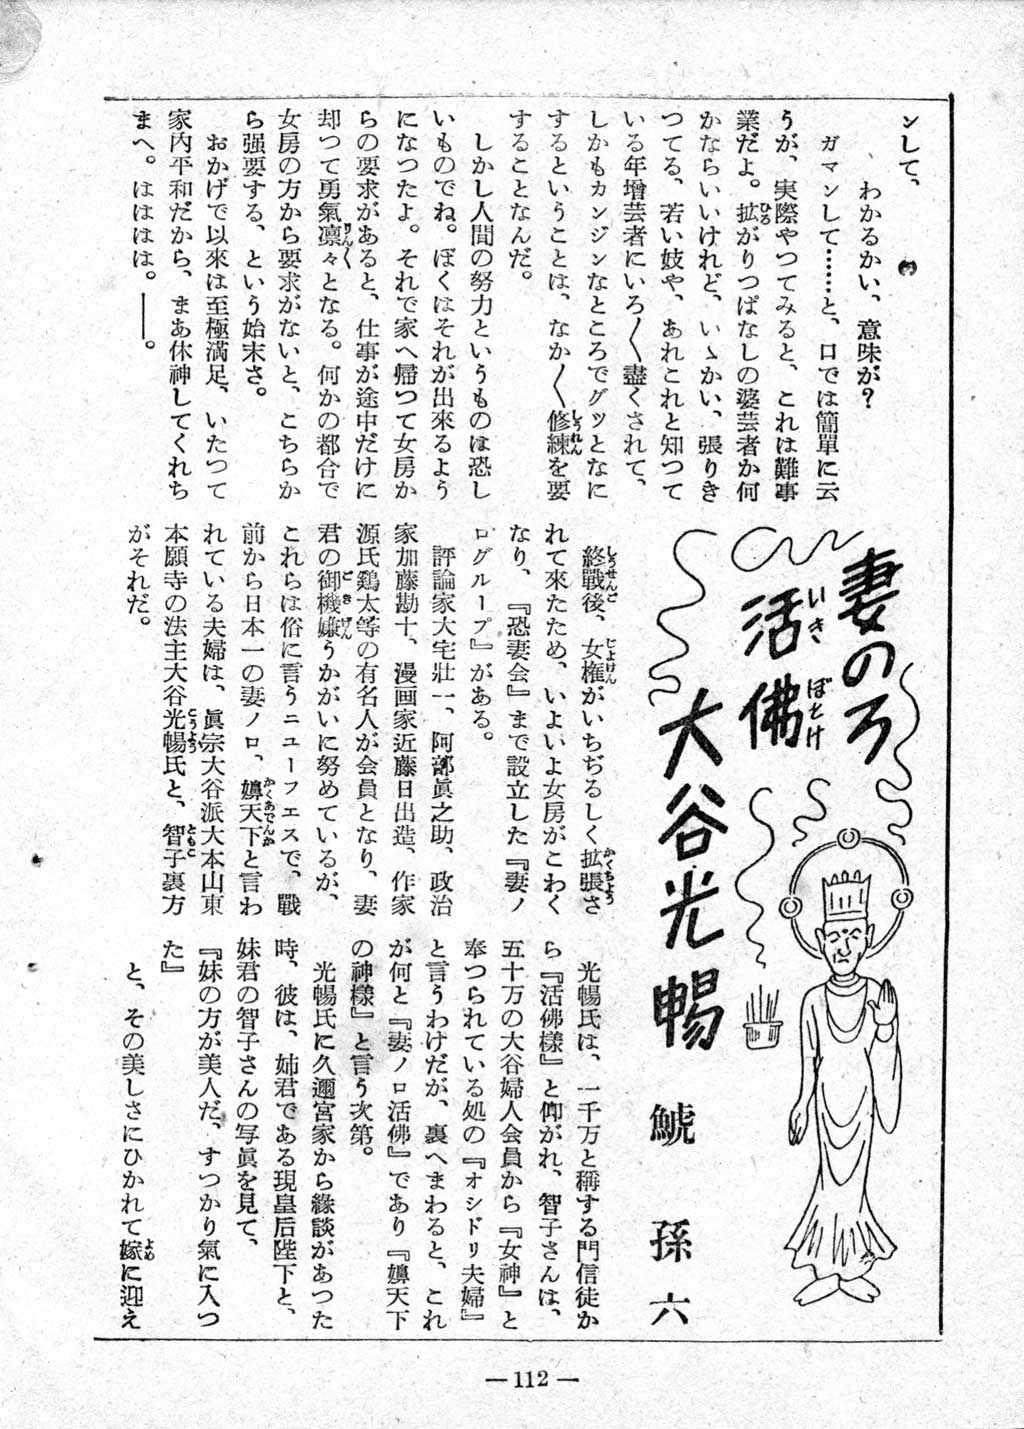 ンして、
、わかるかい、意味が？
ガマンして……と、口では簡單に云
うが、実際やつてみると、これは難事
業だよ。拡がりつぱなしの婆芸者か何
かならいいけれど、いゝかい、張りき
つてる、若い妓や、あれこれと知つて
いる年增芸者にいろ〱盡くされて、
しかもカンジンなところでグッとなに
するということは、なか〱修練を要
することなんだ。
しかし人間の努力というものは恐し
いものでね。ぼくはそれが出來るよう
になつたよ。それで家へ帰つて女房か
らの要求があると、仕事が途中だけに
却つて勇氣凛々となる。何かの都合で
女房の方から要求がないと、こちらか
ら强要する、という始末さ。
おかげで以來は至極滿足、いたつて
家内平和だから、まあ休神してくれち
まへ。はははは。――。
妻のろ
活佛
いき ぼとけ
大谷光暢
鯱 孫六
終戰後、女権がいちぢるしく拡張さ
れて來たため、いよいよ女房がこわく
なり、『恐妻会』まで設立した『妻ノ
ログループ』がある。
評論家大宅壯一、阿部眞之助、政治
家加藤勘十、漫画家近藤日出造、作家
源氏鷄太等の有名人が会員となり、妻
君の御機嫌うかがいに努めているが、
これらは俗に言うニユーフエスで、戰
前から日本一の妻ノロ、嬶天下と言わ
れている夫婦は、眞宗大谷派大本山東
本願寺の法主大谷光暢氏と、智子裏方
がそれだ。
光暢氏は、一千万と稱する門信徒か
ら『活佛樣』と仰がれ、智子さんは、
五十万の大谷婦人会員から『女神』と
奉つられている処の『オシドリ夫婦』
と言うわけだが、裏へまわると、これ
が何と『妻ノロ活佛』であり『嬶天下
の神様』と言う次第。
光暢氏に久邇宮家から緣談があつた
時、彼は、姉君である現皇后陛下と、
妹君の智子さんの写眞を見て、
『妹の方が美人だ、すつかり氣に入つ
た』
と、その美しさにひかれて嫁に迎え
— 112 —